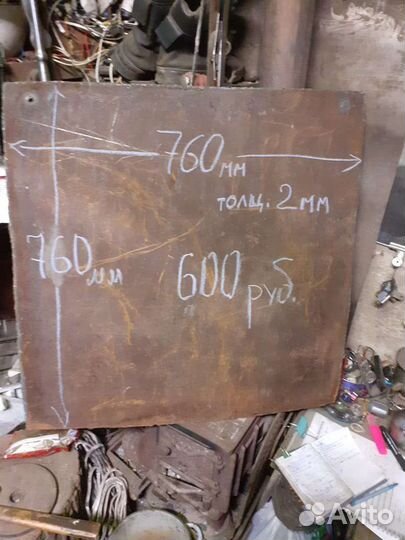 760 мм
толщ. 2 мм
760 мм
600 руб.
Avito